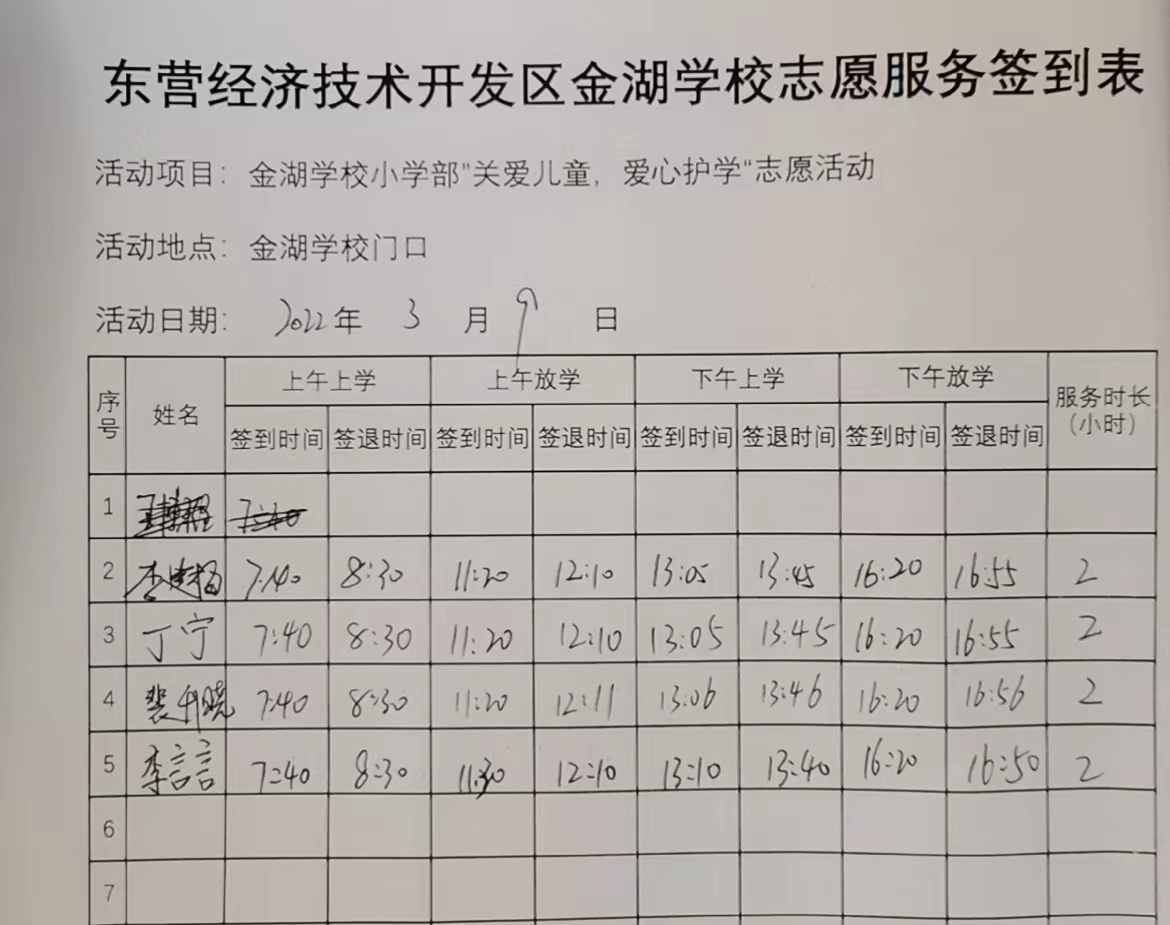 东营经济技术开发区金湖学校志愿服务签到表
活动项目：金湖学校小学部"关爱儿童，爱心护学"志愿活动
活动地点：金湖学校门口
活动日期：2022年 3 月 9 日
序号 姓名 上午上学 上午放学 下午上学 下午放学 服务时长（小时）
签到时间 签退时间 签到时间 签退时间 签到时间 签退时间 签到时间 签退时间
1 7:40
2 7:40 8:30 11:20 12:10 13:05 13:45 16:20 16:55 2
3 丁宁 7:40 8:30 11:20 12:10 13:05 13:45 16:20 16:55 2
4 7:40 8:30 11:20 12:11 13:06 13:46 16:20 16:56 2
5 李言言 7:40 8:30 11:30 12:10 13:10 13:40 16:20 16:50 2
6
7